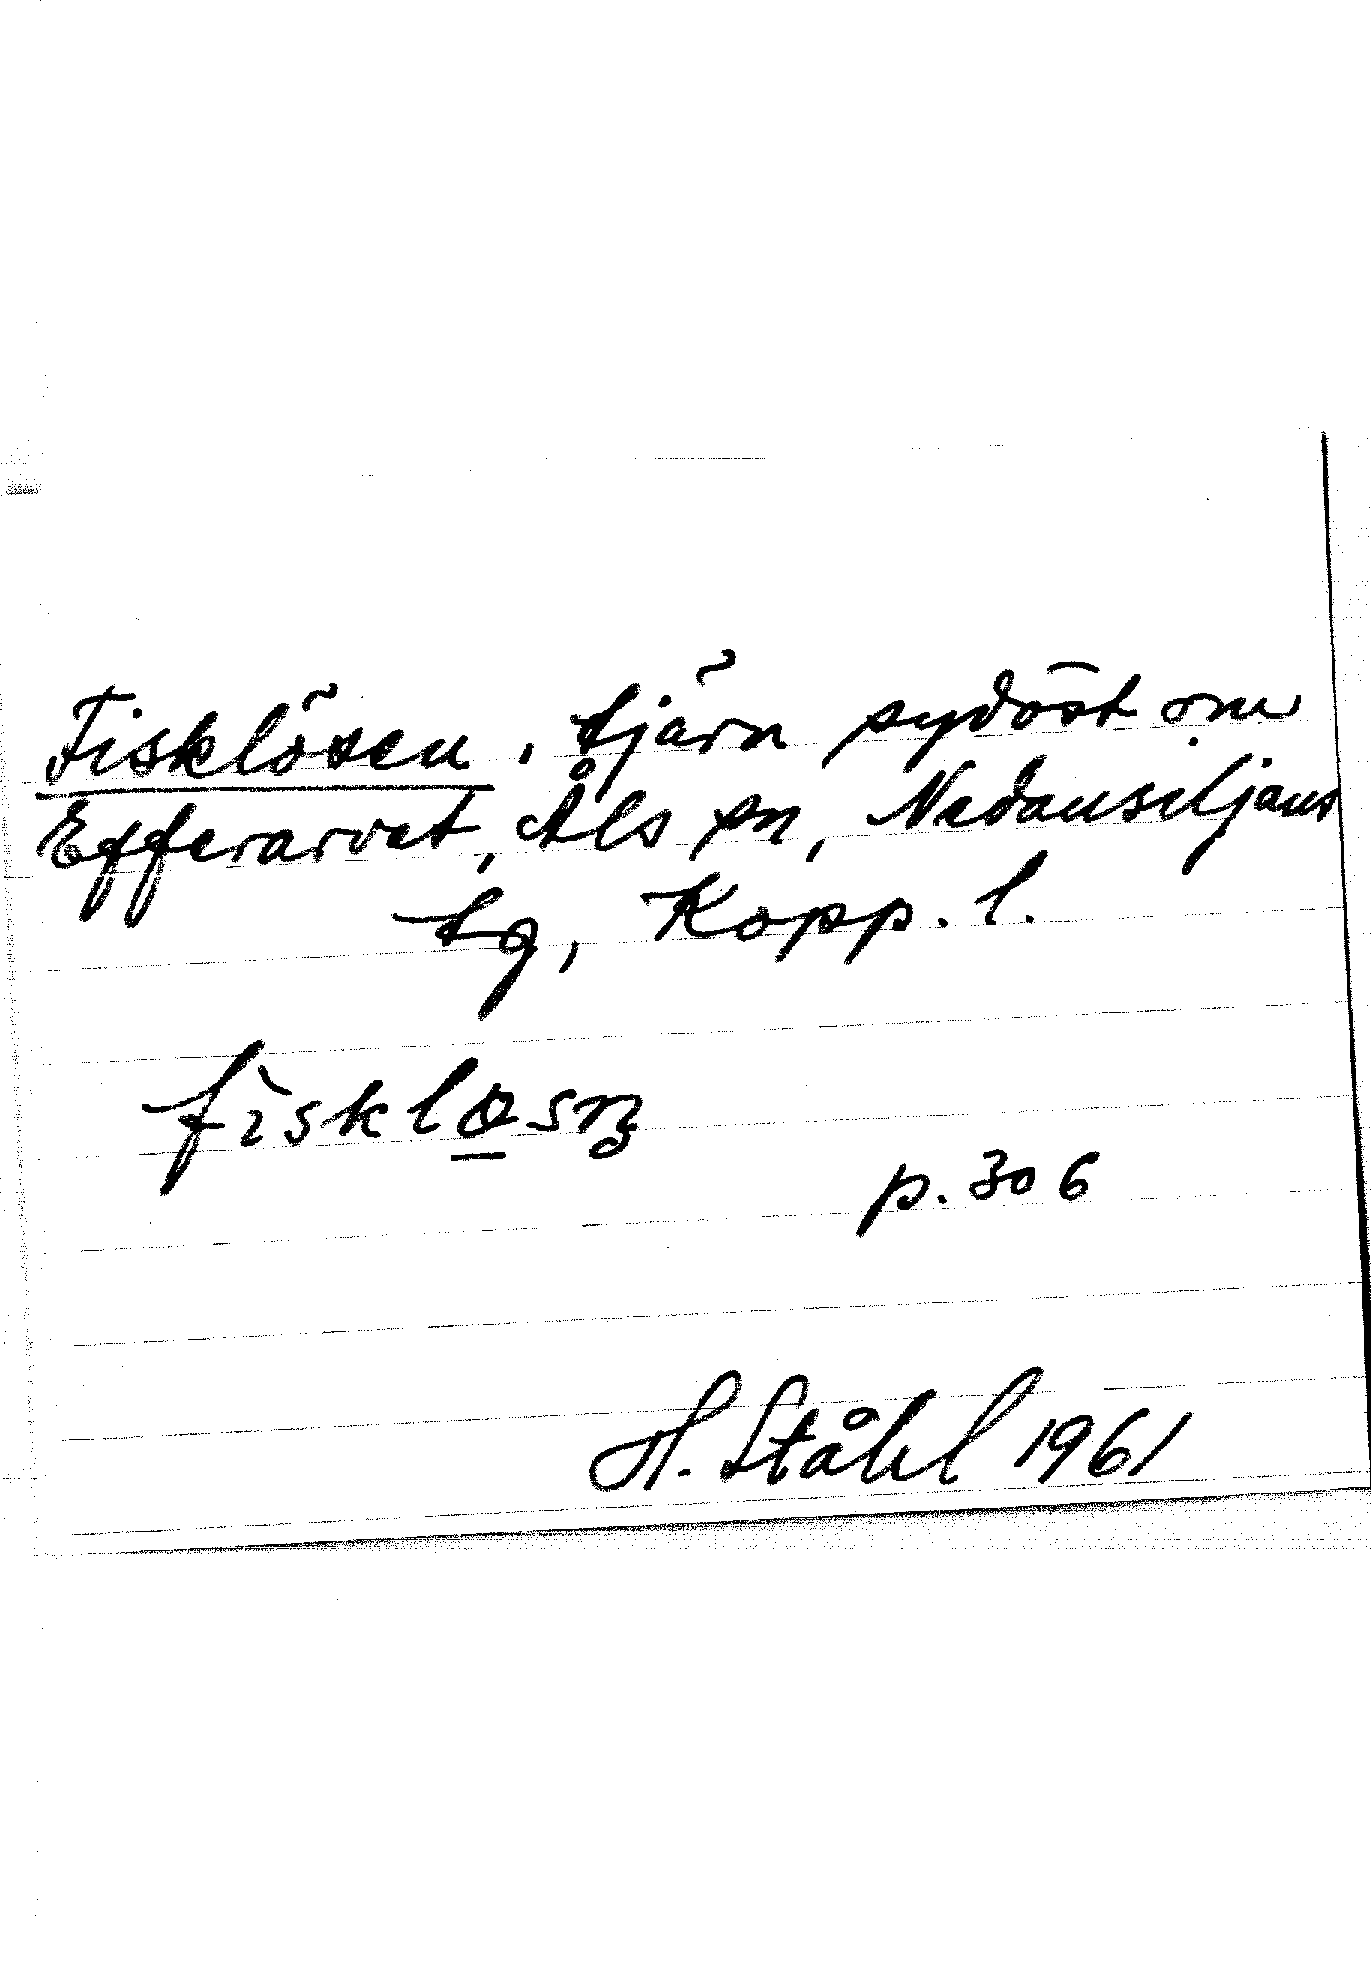 Fisklösen, tjärn sydöst om
Efferarvet, Åls sn, Nedansiljans
tg, Kopp. l.
fìsklø̱sn̥
p. 306
H. Ståhl 1961